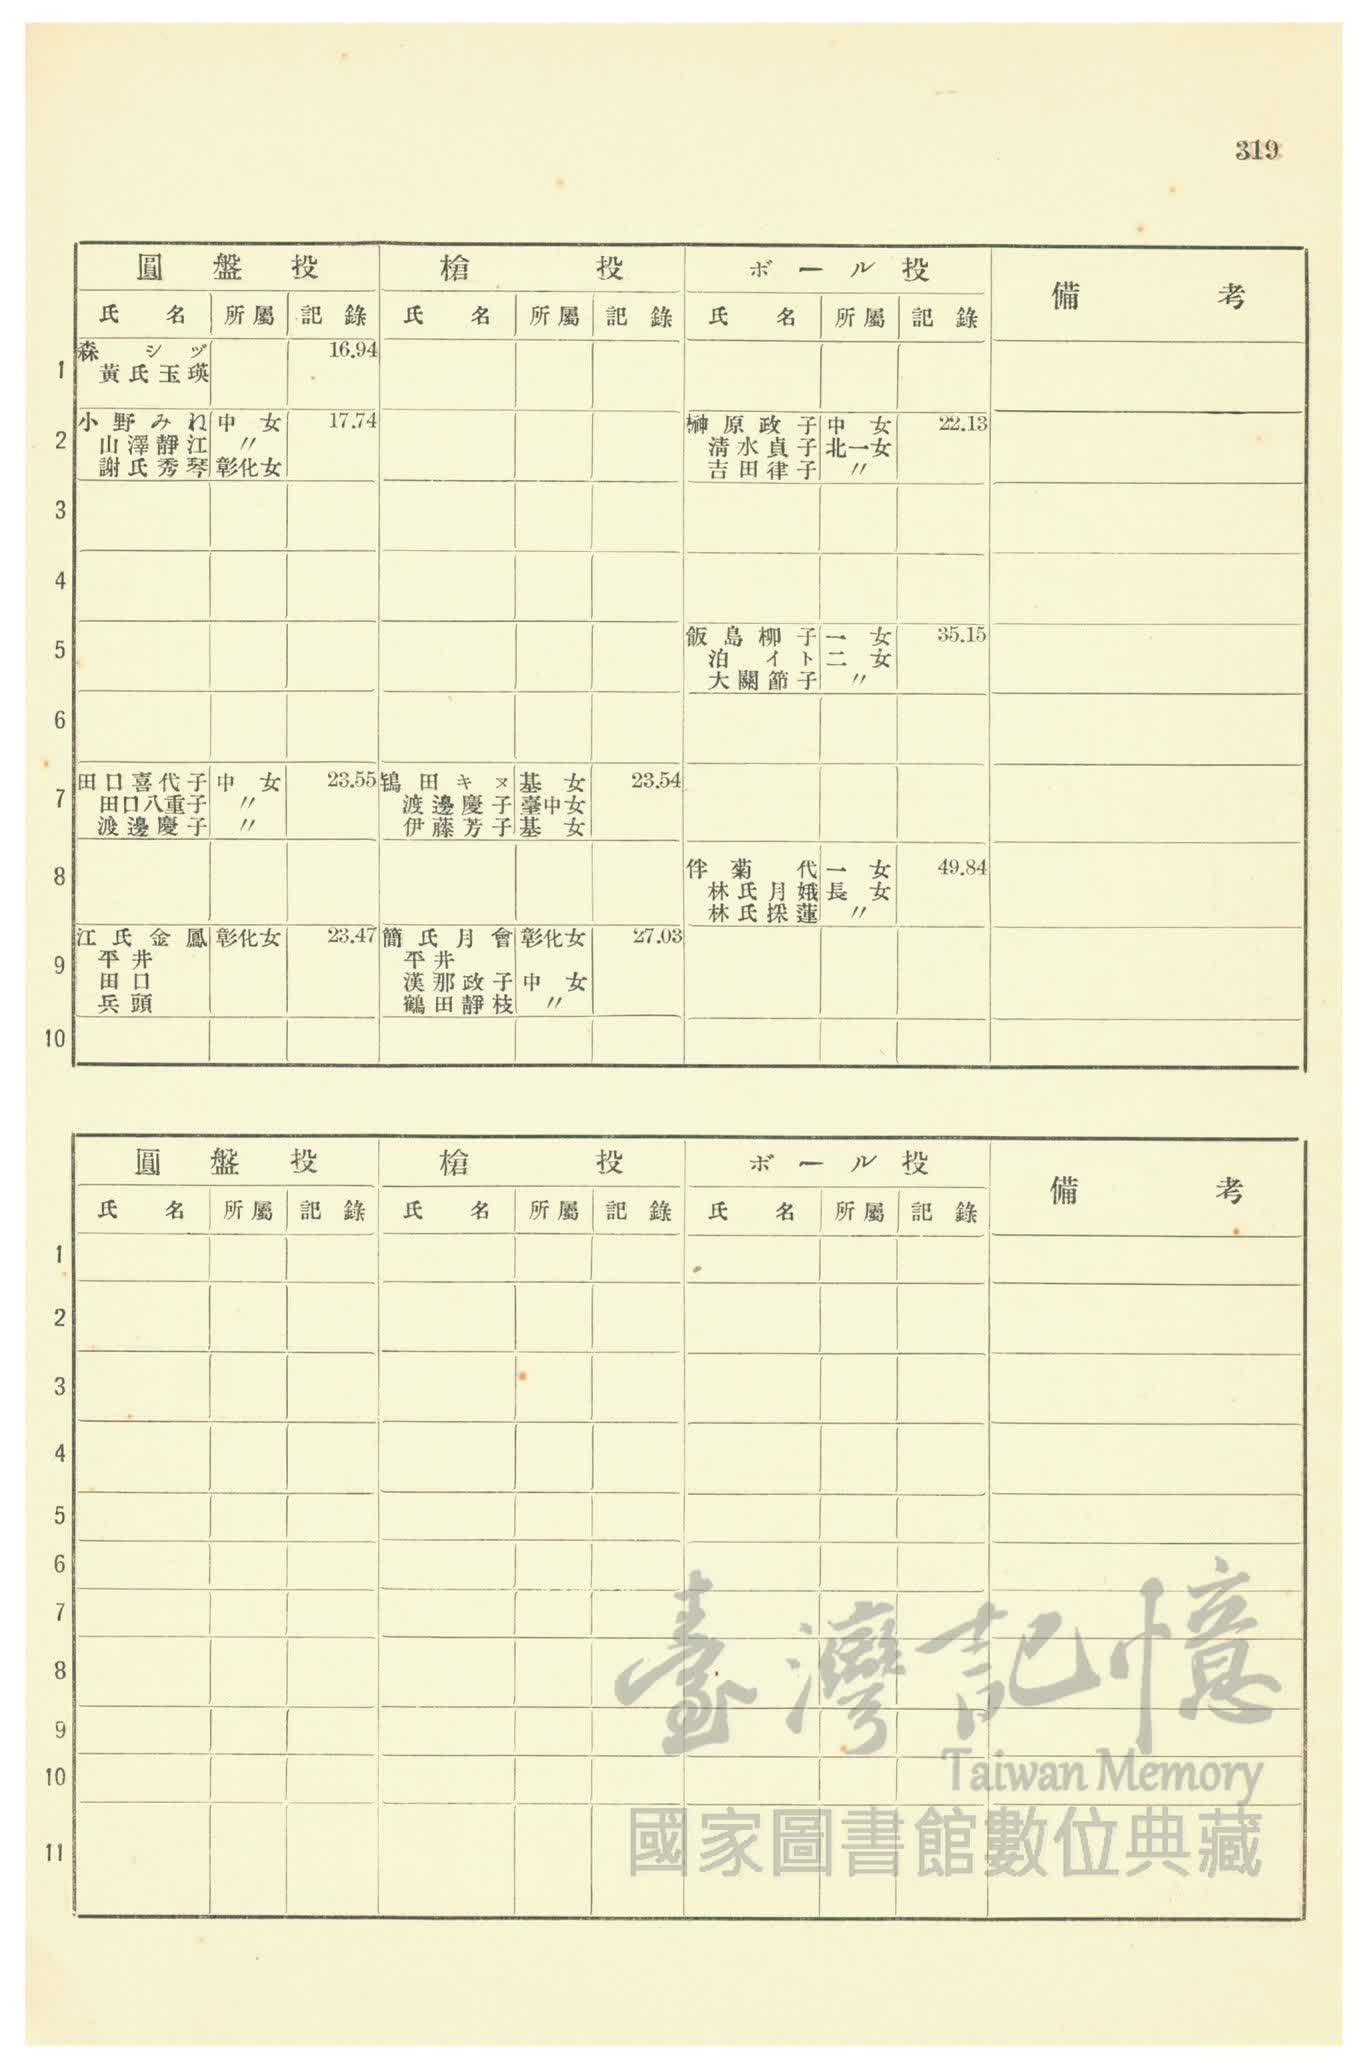 319
圓盤投 槍投 ボール投 備考
氏名 所屬 記錄 氏名 所屬 記錄 氏名 所屬 記錄
1 森シヅ 16.94
黃氏玉瑛
2 小野みね 中女 17.74 榊原政子 中女 22.13
山澤靜江 〃 淸水貞子 北一女
謝氏秀琴 彰化女 吉田律子 〃
3
4
5 飯島柳子 一女 35.15
泊イト 二女
大關節子 〃
6
7 田口喜代子 中女 23.55 鴇田キヌ 基女 23.54
田口八重子 〃 渡邊慶子 臺中女
渡邊慶子 〃 伊藤芳子 基女
8 伴菊代 一女 49.84
林氏月娥 長女
林氏採蓮 〃
9 江氏金鳳 彰化女 23.47 簡氏月會 彰化女 27.03
平井 平井
田口 漢那政子 中女
兵頭 鶴田靜枝 〃
10
圓盤投 槍投 ボール投 備考
氏名 所屬 記錄 氏名 所屬 記錄 氏名 所屬 記錄
1
2
3
4
5
6
7
8
9
10
11
臺灣記憶
Taiwan Memory
國家圖書館數位典藏